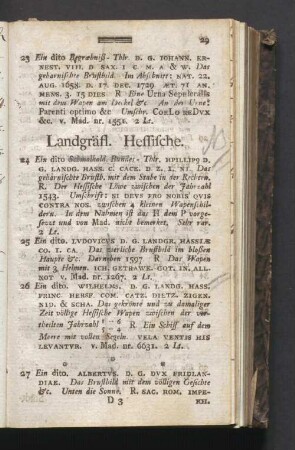 29
23 Ein dito Begræbniß- Thlr. D. G. IOHANN. ER-
NEST. VIII. D. SAX. I. C. M. A & W. Das
geharnischte Brustbild. Im Abschnitt: NAT. 22.
AUG. 1658. D. 17. DEC. 1729. ÆT. 71 AN.
MENS. 3. 15 DIES. R Eine Urna Sepulcralis
mit dem Wapen am Deckel &c An der Urne:
Parenti optimo &c Umschr. COELO REDVX
&c. v. Mad. nr. 1551. 2 Lt.
Landgräfl. Hessische.
24 Ein dito Schmalkald. Bundes- Thlr. PHILIPP9 D.
G. LANDG. HASS. C. CACK. D. Z. E. NI. Das
geharnischte Brustb. mit dem Stabe in der Rechten,
R. Der Hessische Löwe zwischen der Jahrzahl
1543. Umschrift: SI DEVS PRO NOBIS QVIS
CONTRA NOS. zwischen 4 kleinen Wapenschil-
dern. In dem Nahmen ist das R dem P vorge-
setzt und von Mad. nicht bemerket, Sehr rar.
2 Lt.
25 Ein dito. LVDOVICUS D. G. LANDGR. HASSIÆ
CO. T. CA. Das zierliche Brustbild im blossen
Haupte &c. Darneben 1597 R Das Wapen
mit 3 Helmen. ICH. GETRAWE. GOT. IN. ALL-
NOT v. Mad. nr. 1267. 2 Lt.
26 Ein dito. WILHELMS. D. G. LANDG. HASS.
PRINC HERSF. COM. CATZ. DIETZ. ZIGEN.
NID. & SCHA. Das gekrönte und in damaliger
Zeit völlige Hessische Wapen zwischen der ver-
theilten Jahrzahl 1 -- 6 R. Ein Schiff auf dem
5 -- 4
Meere mit vollen Segeln. VELA VENTIS HIS
LEVANTVR. v. Mad. nr. 6631. 2 Lt.
27 Ein dito. ALBERTVS. D. G. DVX FRIDLAN-
DIAE. Das Brustbild mit dem völligen Gesichte
&c. Unten die Sonne. R. SAC. ROM. IMPE-
D 3
RII.